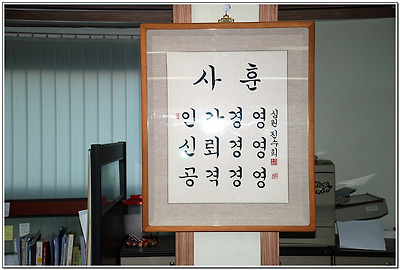 사 훈
인가경영
신뢰경영
공격경영
심원 진수희